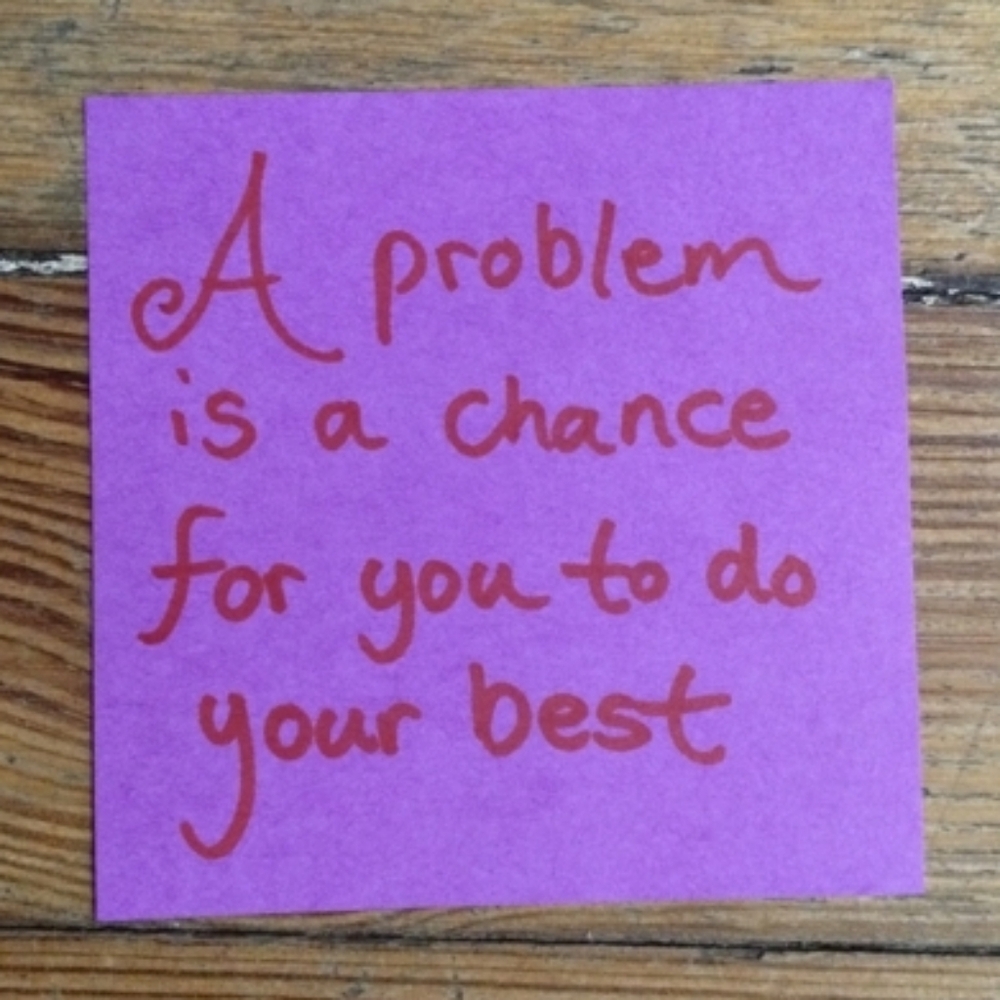 A problem
is a chance
for you to do
your best